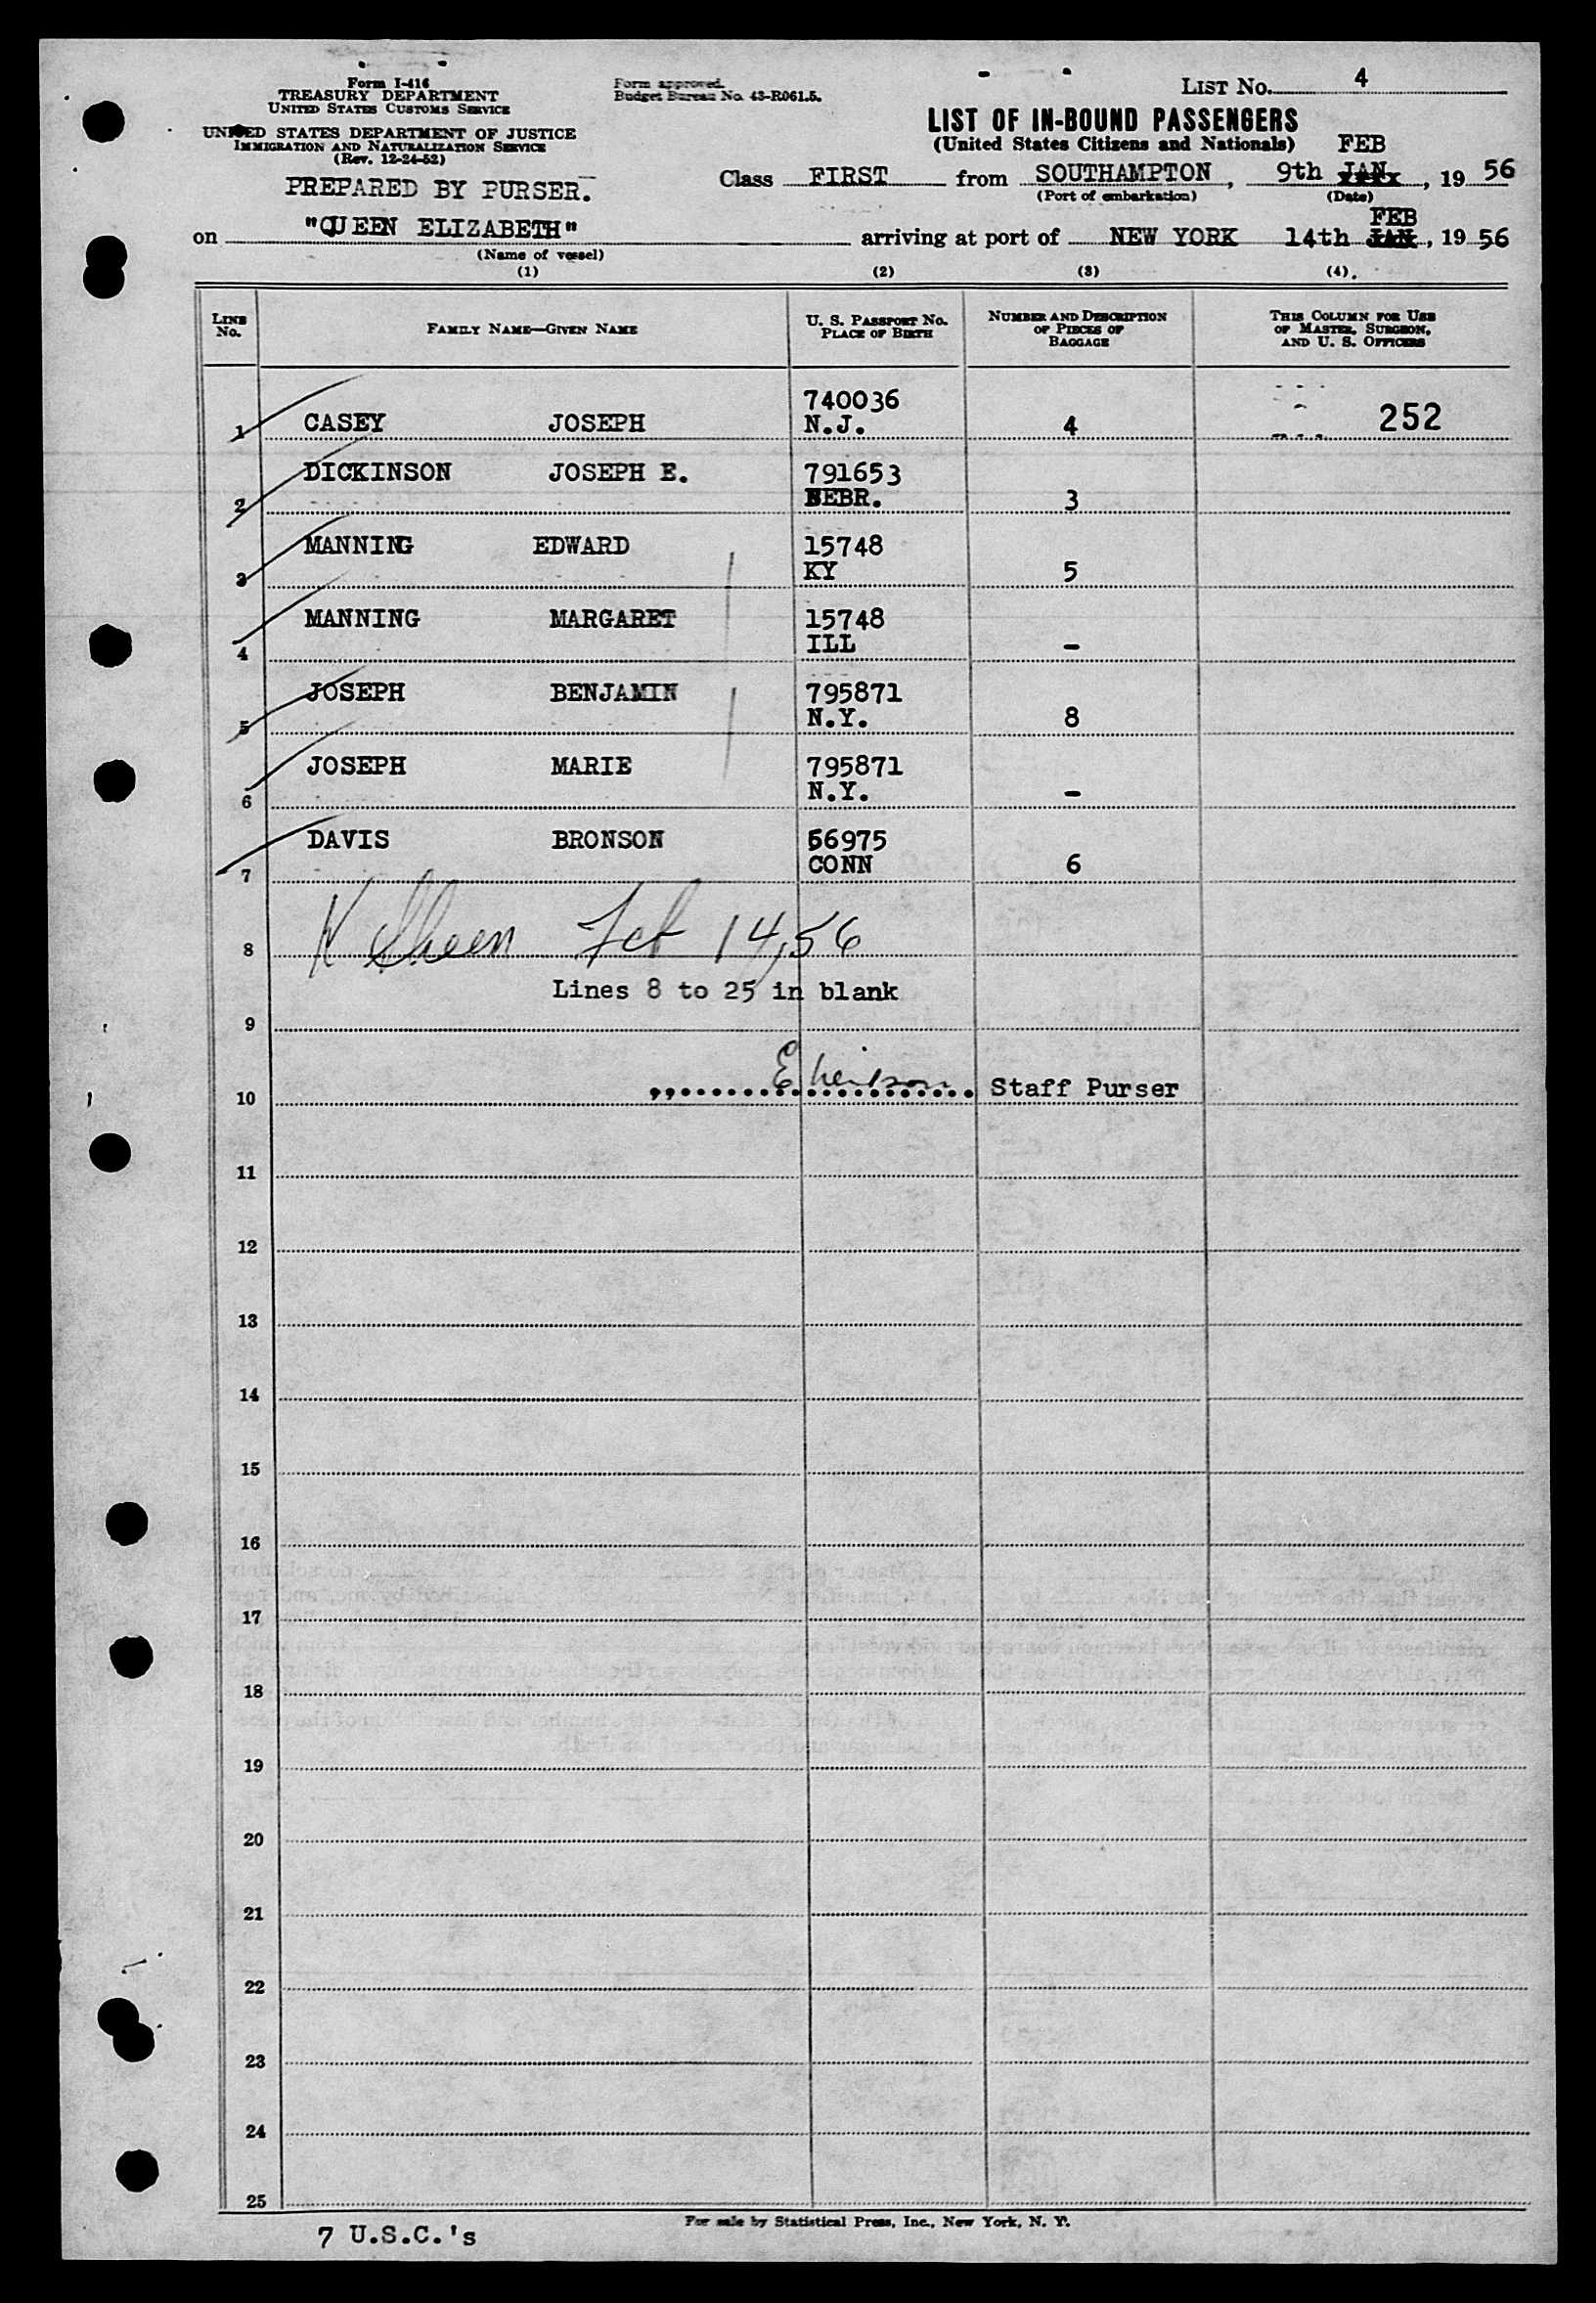 Form I-416
TREASURY DEPARTMENT
UNITED STATES CUSTOMS SERVICE
UNITED STATES DEPARTMENT OF JUSTICE
IMMIGRATION AND NATURALIZATION SERVICE
(Rev. 12-24-52)
Form approved.
Budget Bureau No. 43-R061.5.
LIST NO. 4
LIST OF IN-BOUND PASSENGERS
(United States Citizens and Nationals) FEB
PREPARED BY PURSER.
Class FIRST from SOUTHAMPTON, 9th JAN, 19 56
(Port of embarkation) (Date)
FEB
on "QUEEN ELIZABETH" arriving at port of NEW YORK 14th JAN, 19 56
(Name of vessel)
(1) (2) (3) (4)
LINE No. FAMILY NAME—GIVEN NAME U. S. PASSPORT NO. PLACE OF BIRTH NUMBER AND DESCRIPTION OF PIECES OF BAGGAGE THIS COLUMN FOR USE OF MASTER, SURGEON, AND U. S. OFFICERS
740036
1 CASEY JOSEPH N.J. 4 252
DICKINSON JOSEPH E. 791653
2 NEBR. 3
MANNING EDWARD 15748
3 KY 5
MANNING MARGARET 15748
4 ILL -
JOSEPH BENJAMIN 795871
5 N.Y. 8
JOSEPH MARIE 795871
6 N.Y. -
DAVIS BRONSON 56975
7 CONN 6
8 K Sheen Feb 14, 56
Lines 8 to 25 in blank
9
10 Staff Purser
11
12
13
14
15
16
17
18
19
20
21
22
23
24
25
For sale by Statistical Press, Inc., New York, N. Y.
7 U.S.C.'s